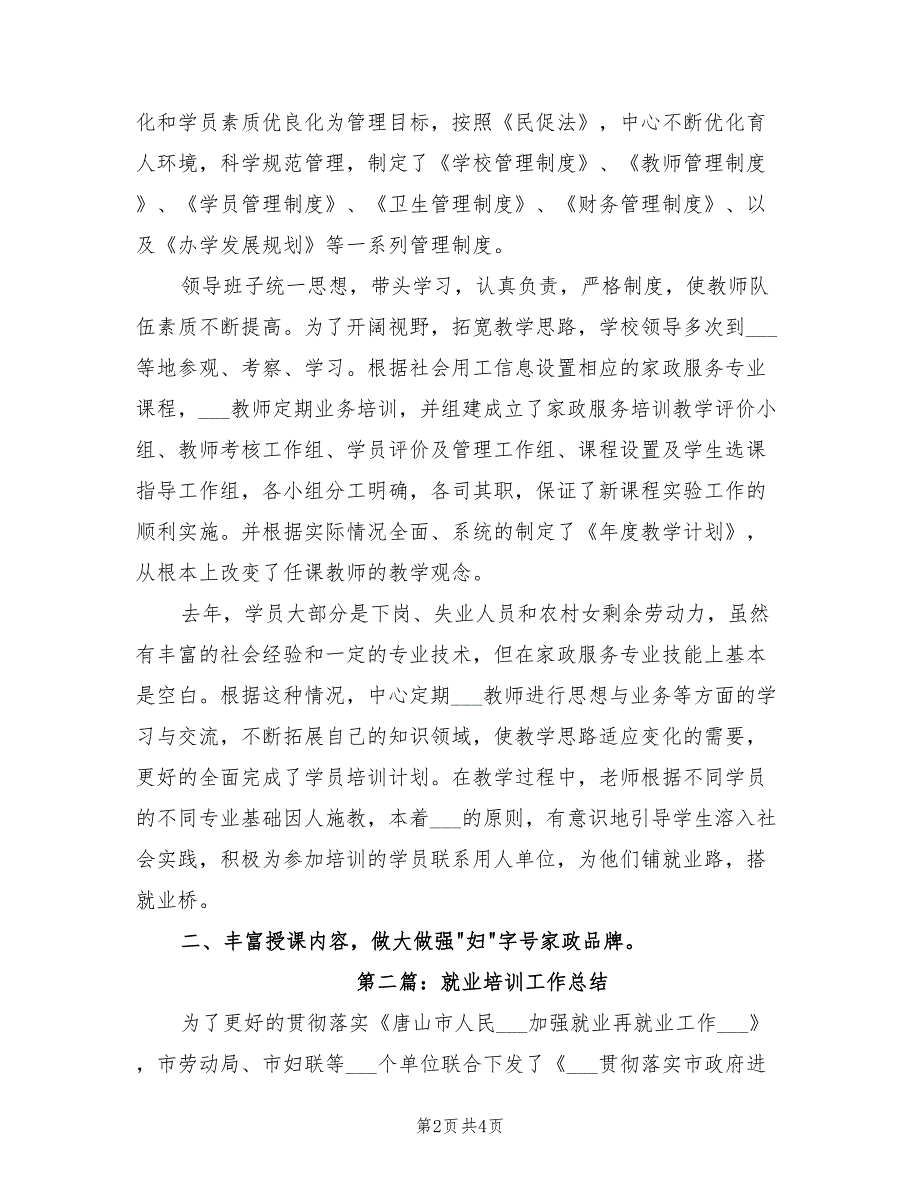 化和学员素质优良化为管理目标，按照《民促法》，中心不断优化育
人环境，科学规范管理，制定了《学校管理制度》、《教师管理制度
》、《学员管理制度》、《卫生管理制度》、《财务管理制度》、以
及《办学发展规划》等一系列管理制度。
领导班子统一思想，带头学习，认真负责，严格制度，使教师队
伍素质不断提高。为了开阔视野，拓宽教学思路，学校领导多次到___
等地参观、考察、学习。根据社会用工信息设置相应的家政服务专业
课程，___教师定期业务培训，并组建成立了家政服务培训教学评价小
组、教师考核工作组、学员评价及管理工作组、课程设置及学生选课
指导工作组，各小组分工明确，各司其职，保证了新课程实验工作的
顺利实施。并根据实际情况全面、系统的制定了《年度教学计划》，
从根本上改变了任课教师的教学观念。
去年，学员大部分是下岗、失业人员和农村女剩余劳动力，虽然
有丰富的社会经验和一定的专业技术，但在家政服务专业技能上基本
是空白。根据这种情况，中心定期___教师进行思想与业务等方面的学
习与交流，不断拓展自己的知识领域，使教学思路适应变化的需要，
更好的全面完成了学员培训计划。在教学过程中，老师根据不同学员
的不同专业基础因人施教，本着___的原则，有意识地引导学生溶入社
会实践，积极为参加培训的学员联系用人单位，为他们铺就业路，搭
就业桥。
二、丰富授课内容，做大做强"妇"字号家政品牌。
第二篇：就业培训工作总结
为了更好的贯彻落实《唐山市人民___加强就业再就业工作___》
，市劳动局、市妇联等___个单位联合下发了《___贯彻落实市政府进
第2页共4页